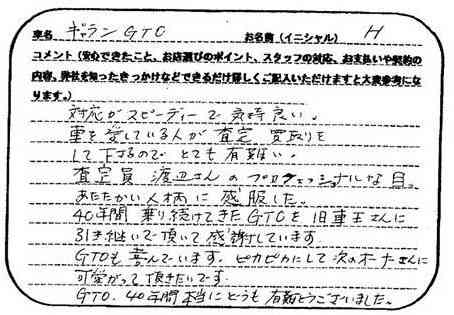 車名 ギャラン GTO お名前(イニシャル) H
コメント(安心できたこと、お店選びのポイント、スタッフの対応、お支払いや契約の
内容、弊社を知ったきっかけなどできるだけ詳しくご記入いただけますと大変参考にな
ります。)
対応がスピーディーで気持良い。
車を愛している人が査定 買取りを
して下さるので とても有難い。
査定員 渡辺さんのプロフェッショナルな目。
あたたかい人柄に感服した。
40年間 乗り続けてきたGTOを旧車王さんに
引き継いで頂いて感謝しています
GTOも喜んでいます。ピカピカにして次のオーナーさんに
可愛がって頂きたいです。
GTO. 40年間本当にどうも有難とうございました。